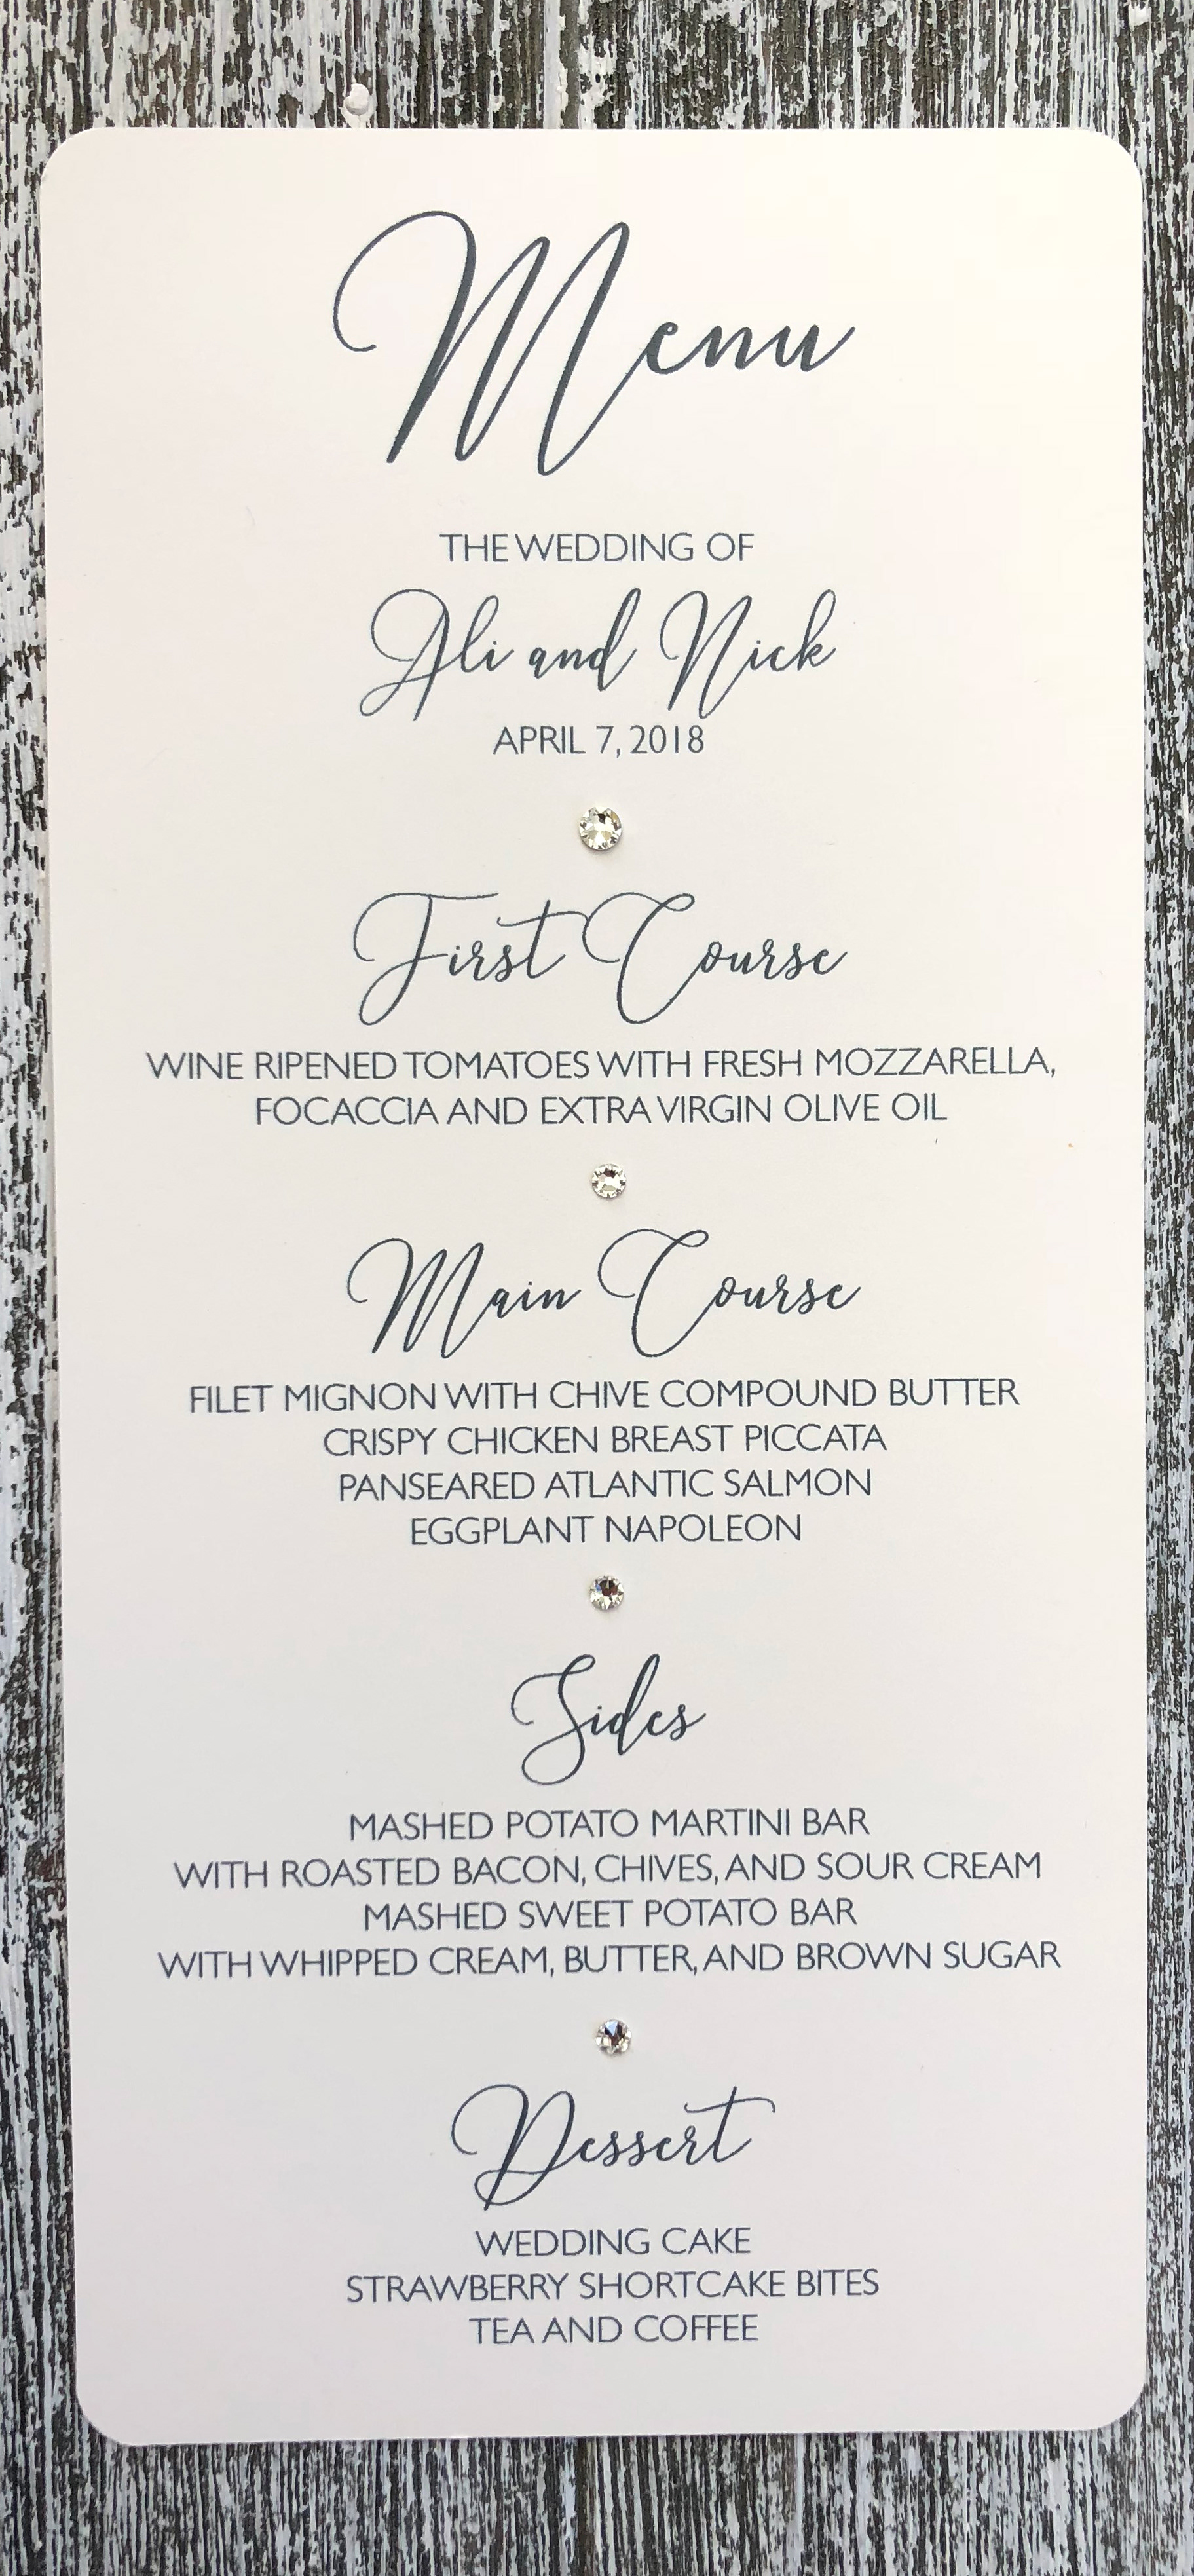 Menu
THE WEDDING OF
Ali and Nick
APRIL 7, 2018
First Course
WINE RIPENED TOMATOES WITH FRESH MOZZARELLA,
FOCACCIA AND EXTRA VIRGIN OLIVE OIL
Main Course
FILET MIGNON WITH CHIVE COMPOUND BUTTER
CRISPY CHICKEN BREAST PICCATA
PANSEARED ATLANTIC SALMON
EGGPLANT NAPOLEON
Sides
MASHED POTATO MARTINI BAR
WITH ROASTED BACON, CHIVES, AND SOUR CREAM
MASHED SWEET POTATO BAR
WITH WHIPPED CREAM, BUTTER, AND BROWN SUGAR
Dessert
WEDDING CAKE
STRAWBERRY SHORTCAKE BITES
TEA AND COFFEE